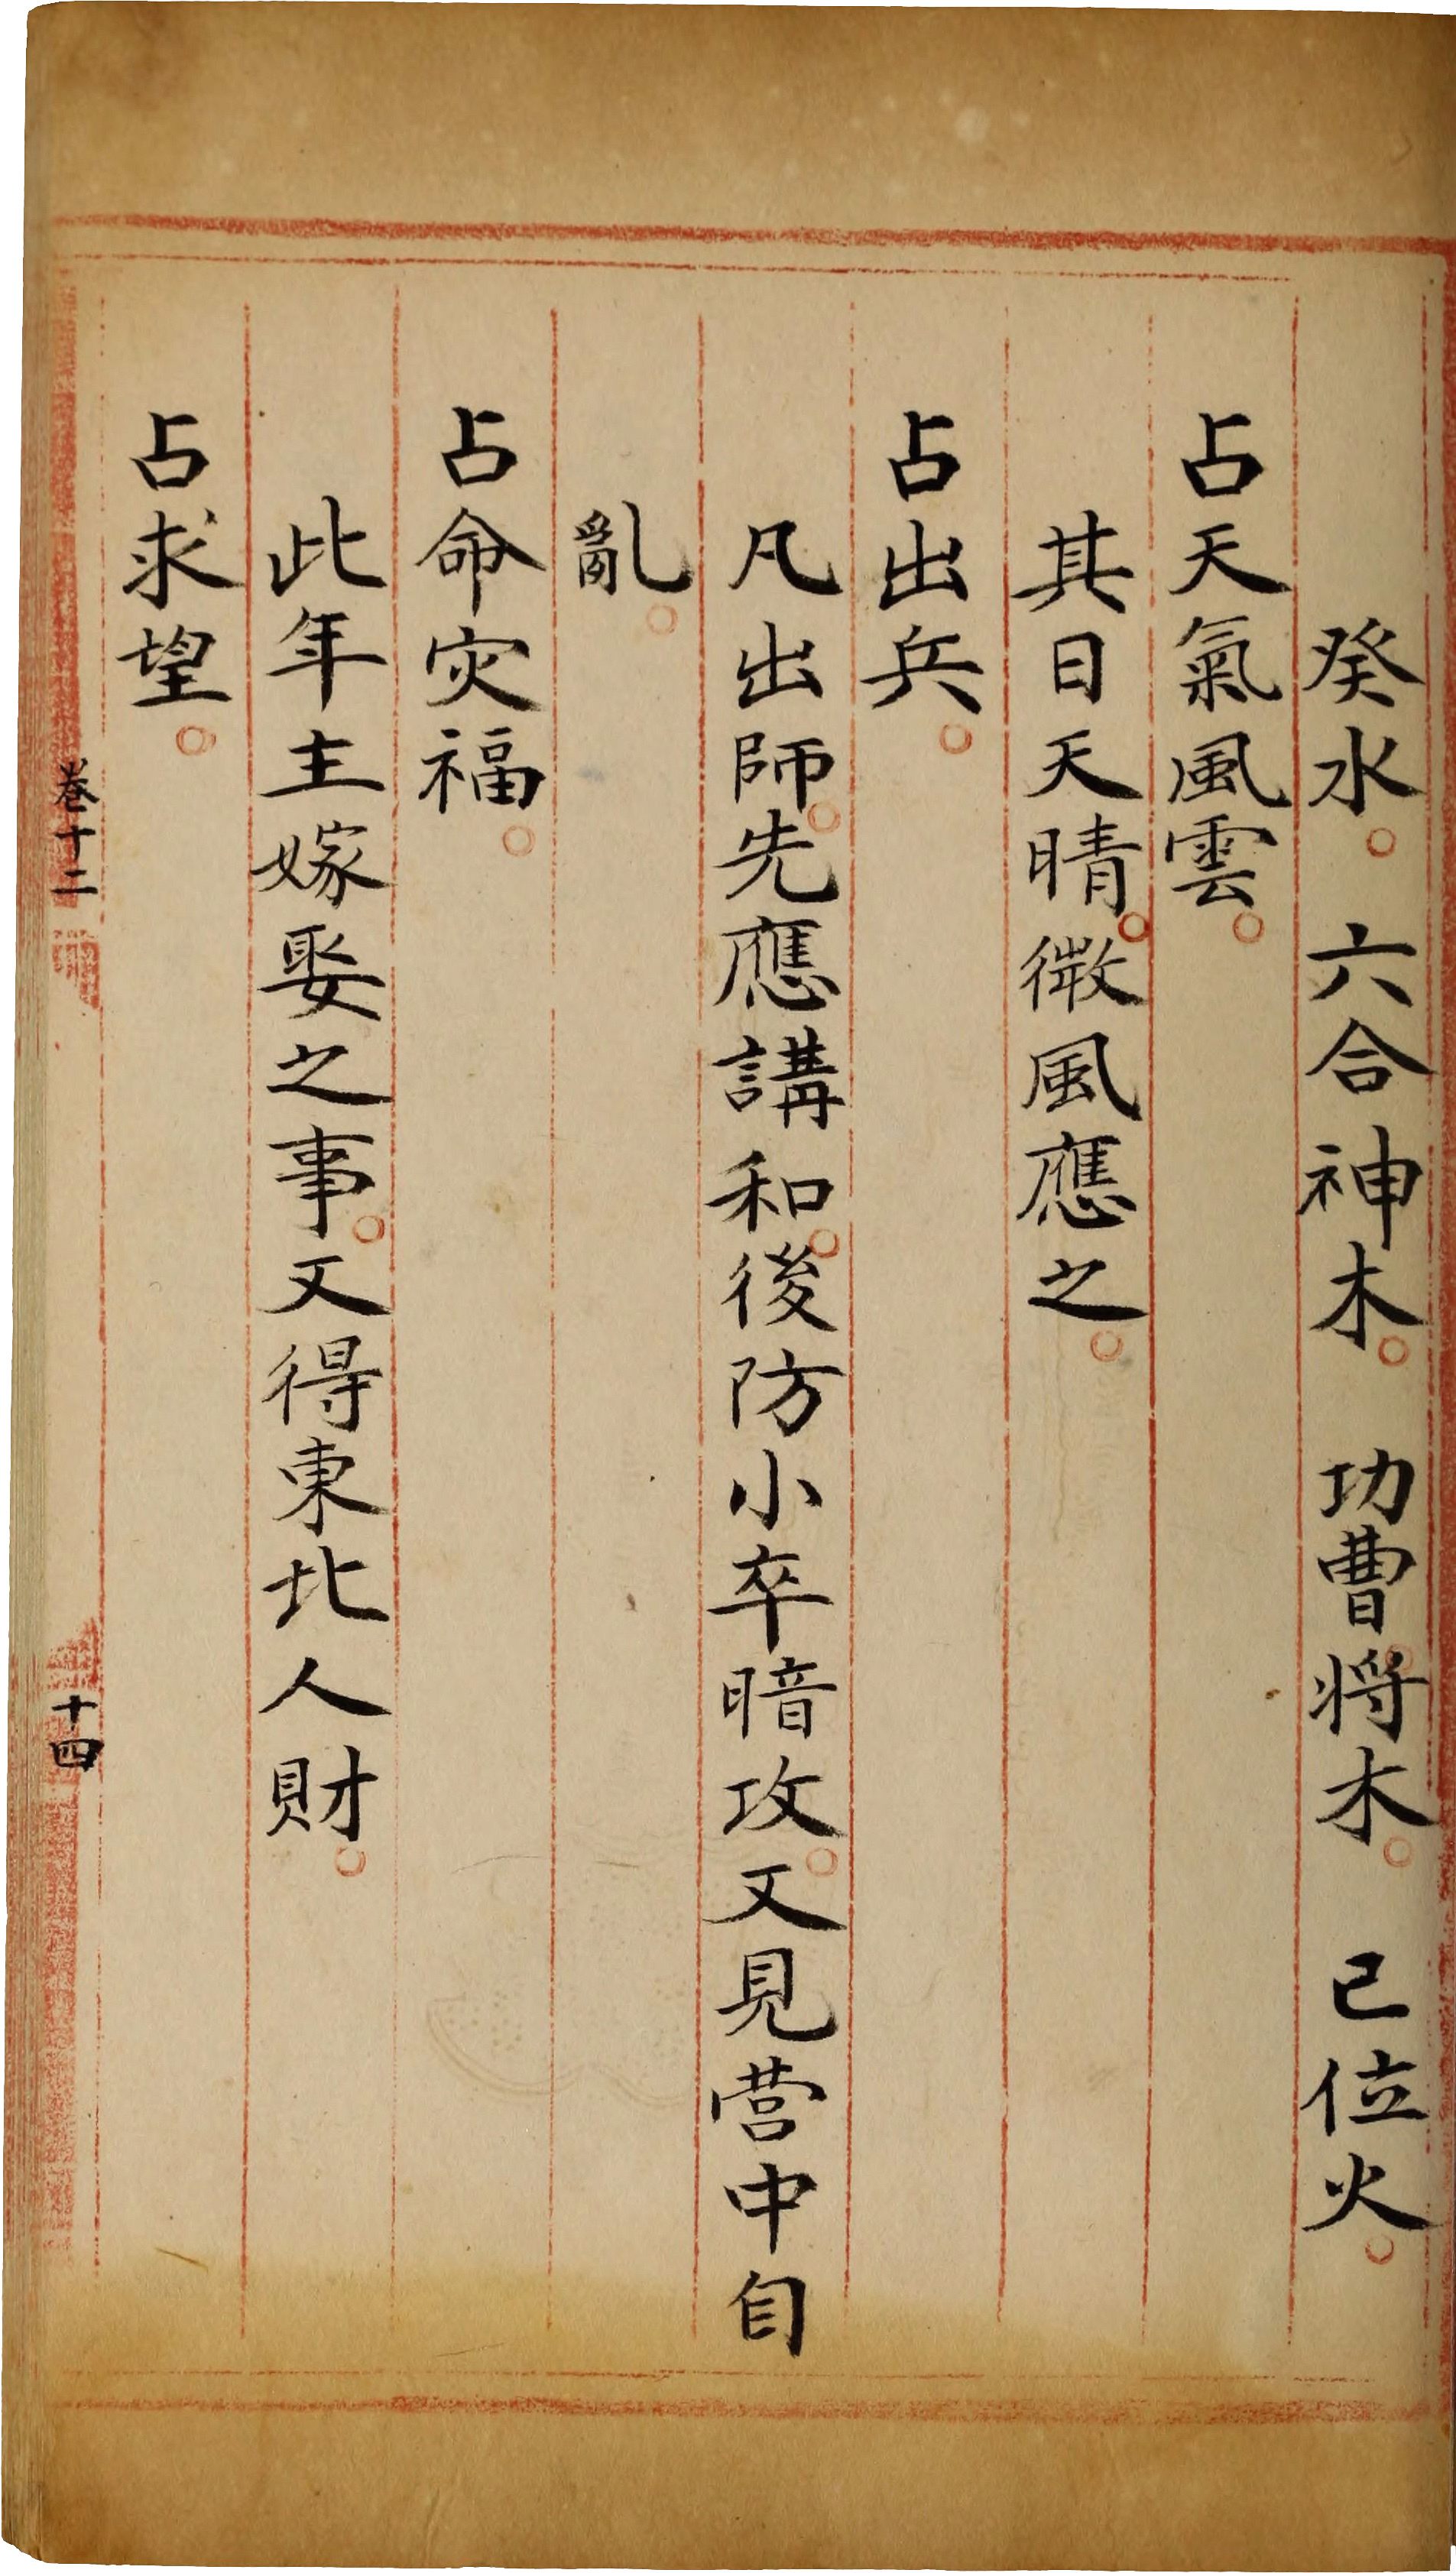 癸水。六合神木。功曹將木。已位火。
占天氣風雲。
其日天晴。微風應之。
占出兵。
凡出師。先應講和。後防小卒暗攻。又見营中自
亂。
占命灾福。
此年主嫁娶之事。又得東北人財。
占求望。
卷十二 十四